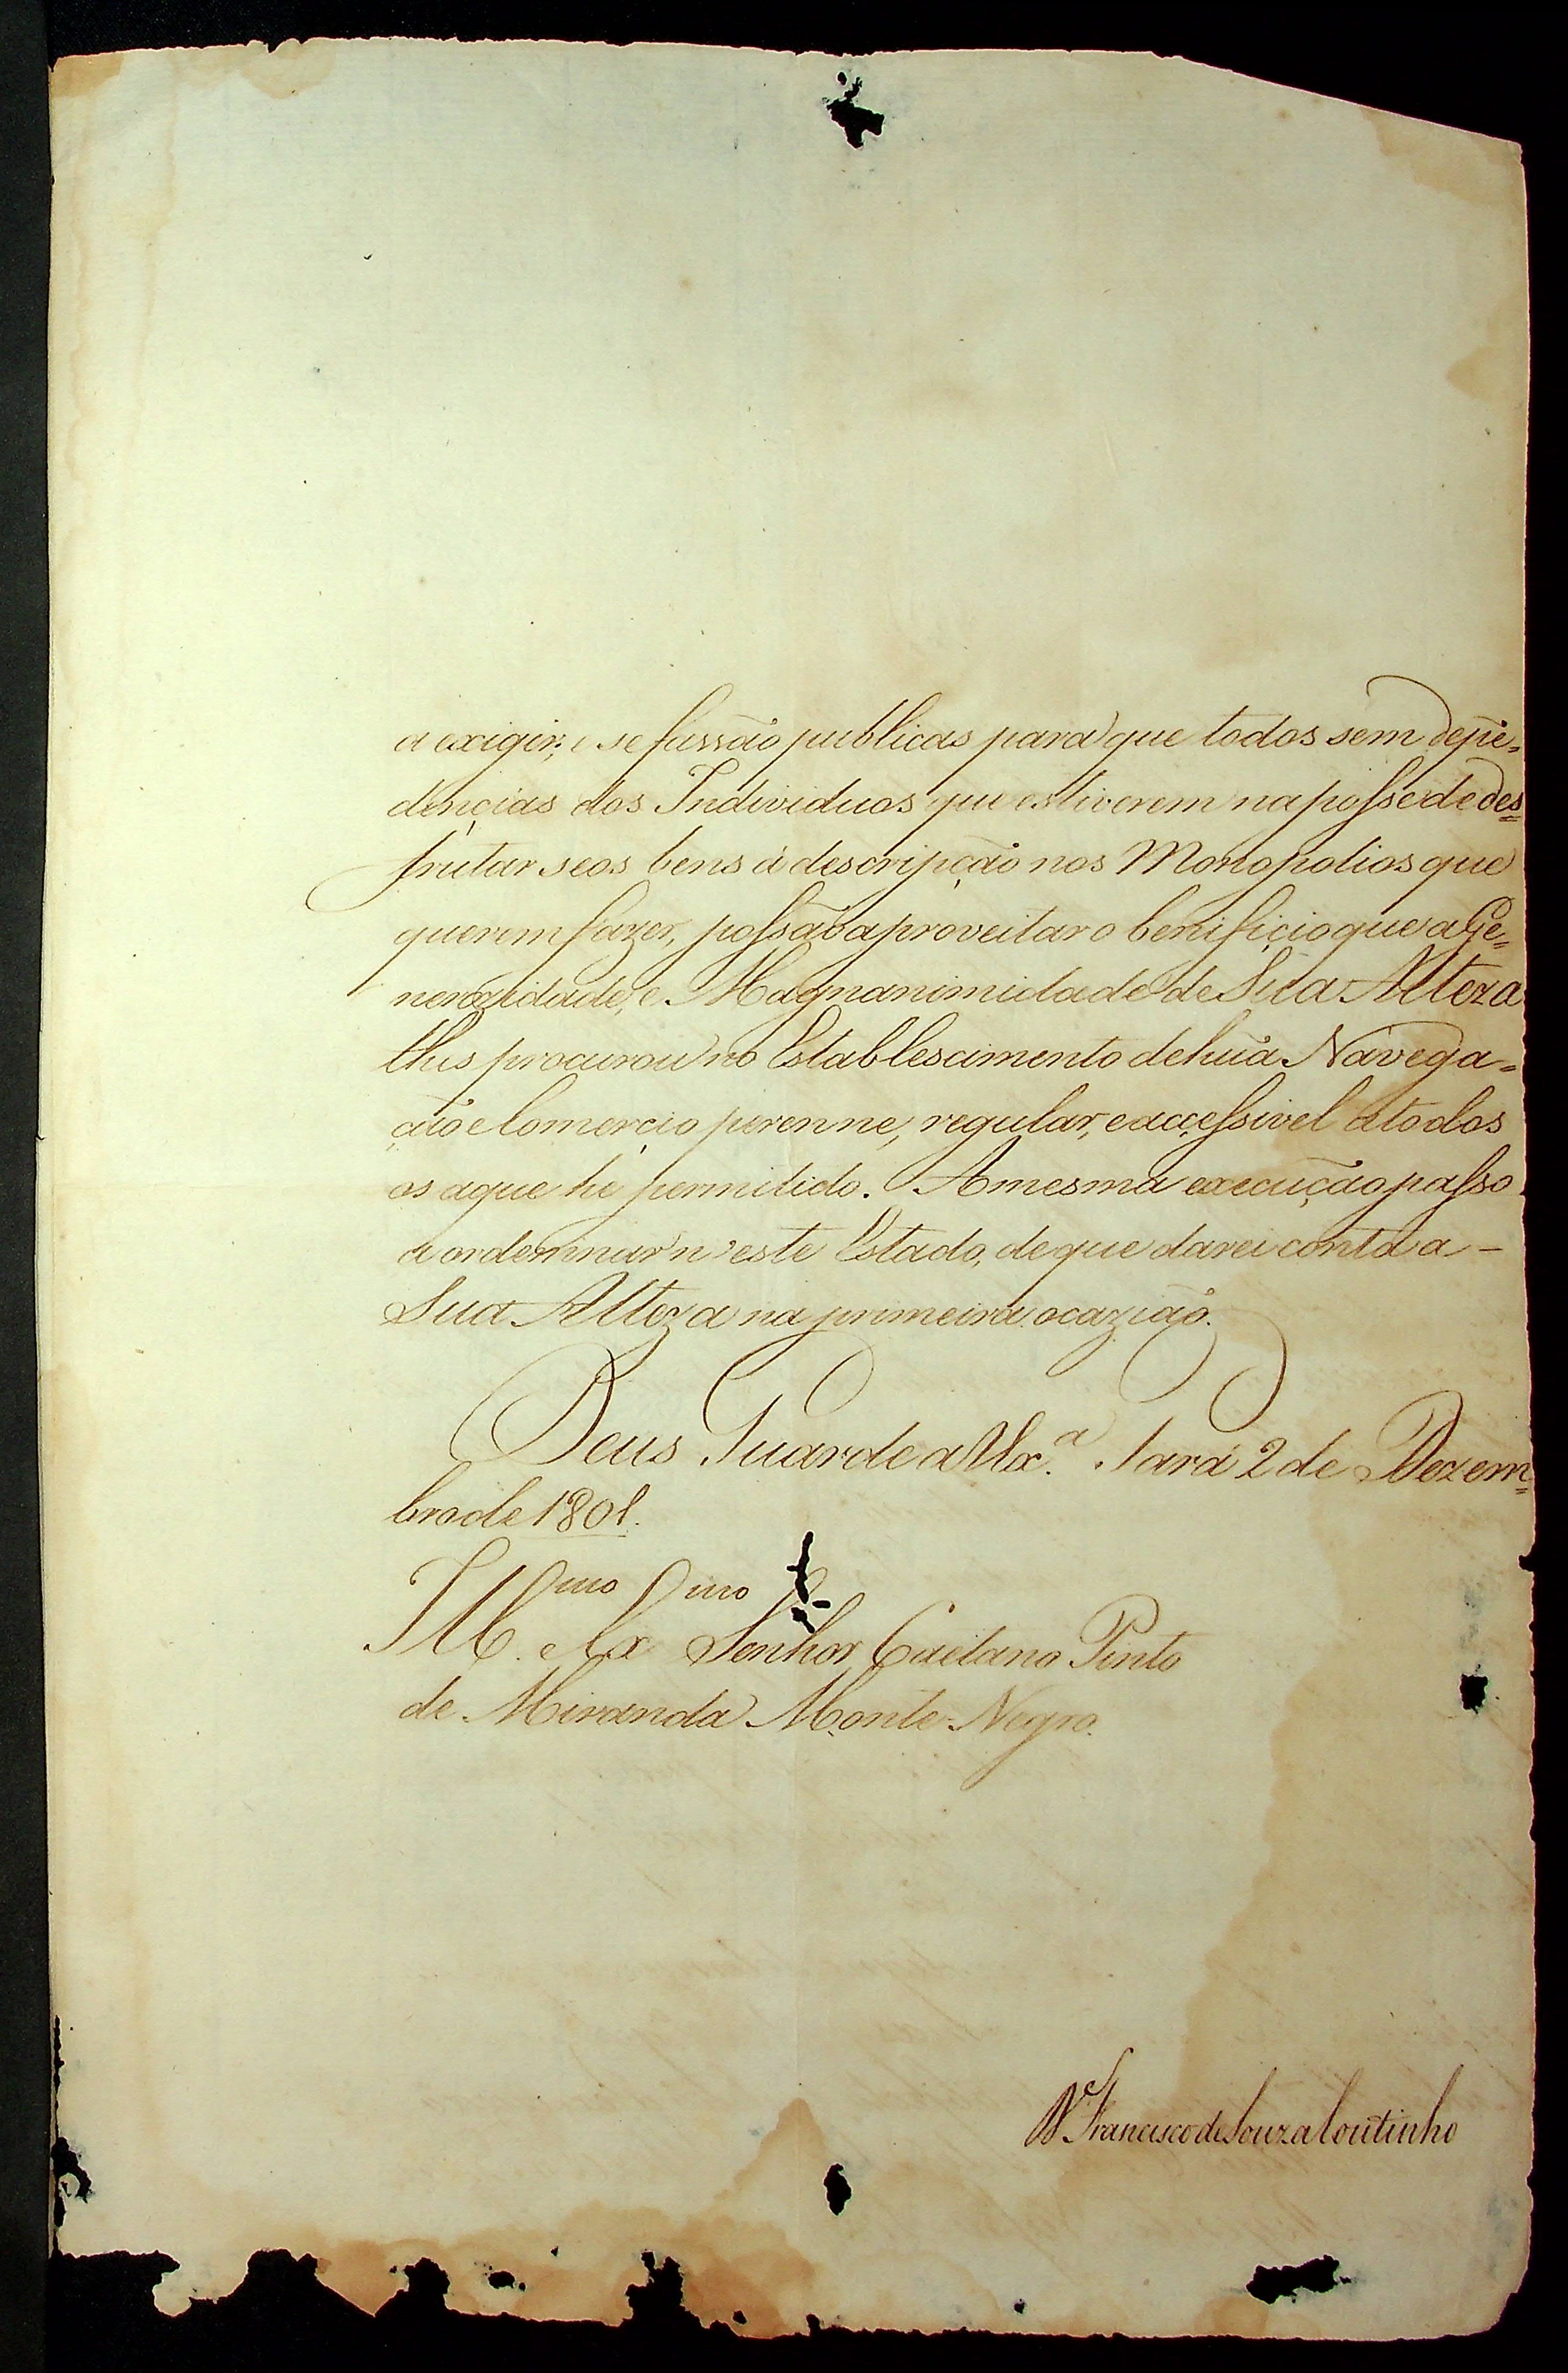 a exigir; e se fassão publicas para que todos sem depẽ=
dencias dos Individuos que estiverem na posse de des=
frutar seos bens á descripção nos Monopolios que
querem fazer, possão aproveitar o benificio que a Ge=
nerozidade, e Magnanimidade de Sua Alteza
lhes procurou no Establescimento de hũa Navega=
ção e Comercio perenne, regular, e accessivel a todos
os aque he permitido. A mesma execução passo
a ordennar n'este Estado, de que darei conta a -
Sua Alteza na primeira ocazião.
Deus Guarde a VEx.ª Pará 2 de Dezem=
bro de 1801.
Ill.mo e Ex.mo Senhor Caetano Pinto
de Miranda Monte Negro.
D. Francisco de Souza Coutinho